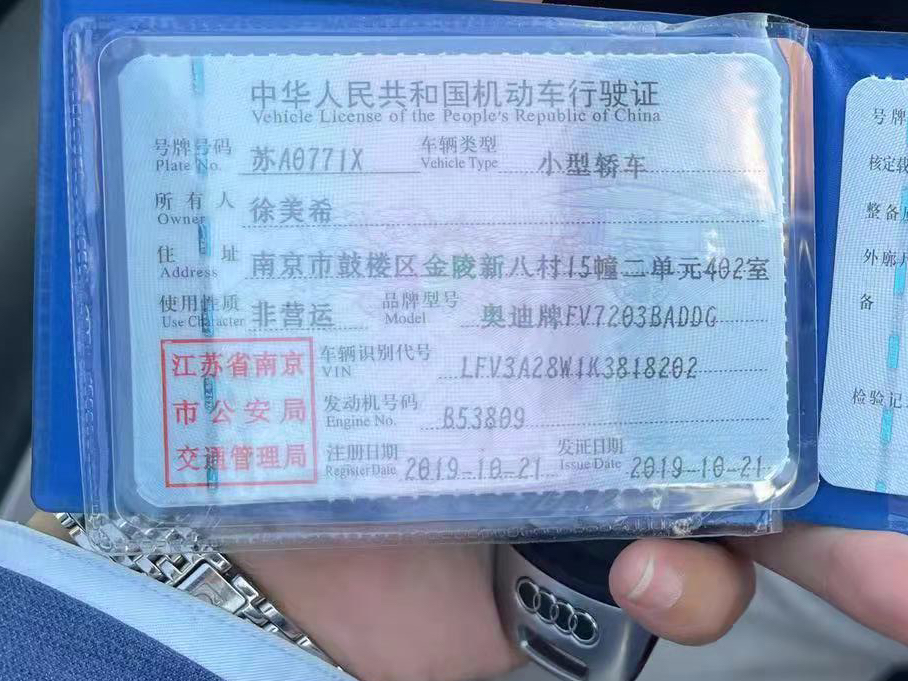 中华人民共和国机动车行驶证
Vehicle License of the People's Republic of China
号牌号码 苏A0771X 车辆类型 小型轿车
Plate No. Vehicle Type
所有人 徐美希
Owner
住址 南京市鼓楼区金陵新八村15幢二单元402室
Address
使用性质 非营运 品牌型号 奥迪牌FV7203BADDG
Use Character Model
江苏省南京
市公安局
交通管理局
车辆识别代号 LFV3A28W1K3818202
VIN
发动机号码 B53809
Engine No.
注册日期 2019-10-21 发证日期 2019-10-21
Register Date Issue Date
号牌
核定载
整备
外廓尺
备
检验记